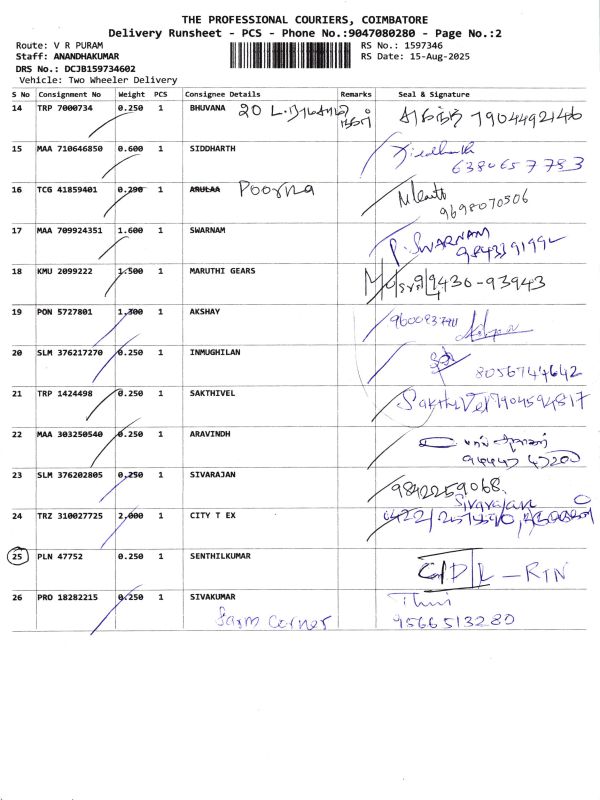 THE PROFESSIONAL COURIERS, COIMBATORE
Delivery Runsheet - PCS - Phone No.:9047080280 - Page No.:2
Route: V R PURAM RS No.: 1597346
Staff: ANANDHAKUMAR RS Date: 15-Aug-2025
DRS No.: DCJB159734602
Vehicle: Two Wheeler Delivery
S No Consignment No Weight PCS Consignee Details Remarks Seal & Signature
14 TRP 7000734 0.250 1 BHUVANA 20 7904492146
15 MAA 710646850 0.600 1 SIDDHARTH Siddharth
6380657783
16 TCG 41859401 0.290 1 ARULAA Poorna
9698070506
17 MAA 709924351 1.600 1 SWARNAM P. SWARNAM
18 KMU 2099222 1.500 1 MARUTHI GEARS 9430-93943
19 PON 5727801 1.300 1 AKSHAY
20 SLM 376217270 0.250 1 INMUGHILAN
8056744642
21 TRP 1424498 0.250 1 SAKTHIVEL SakthiVel 7904594817
22 MAA 303250540 0.250 1 ARAVINDH
23 SLM 376202805 0.250 1 SIVARAJAN 9842259068
Sivarajan
24 TRZ 310027725 2.000 1 CITY T EX
25 PLN 47752 0.250 1 SENTHILKUMAR C/D/L - RTN
26 PRO 18282215 0.250 1 SIVAKUMAR
Farm Corner 9566513280